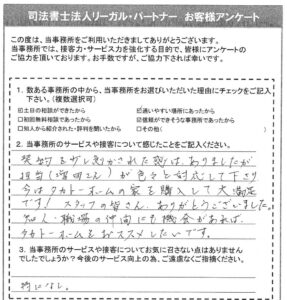 司法書士法人リーガル・パートナー　お客様アンケート
この度は、当事務所をご利用いただきましてありがとうございます。
当事務所では、接客力・サービス力を強化する目的で、皆様にアンケートの
ご協力を頂いております。お手数ですが、ご協力下されば幸いです。
1．数ある事務所の中から、当事務所をお選びいただいた理由にチェックをご記入
下さい。(複数選択可)
☑土日の相談ができたから　☑通いやすい場所にあったから
□初回無料相談であったから　☑信頼ができそうな事務所であったから
□知人から紹介された・評判を聞いたから　□その他(　)
2．当事務所のサービスや接客について感じたことをご記入ください。
契約をサレ
された感は、ありましたが
担当(窪田さん)が色々と対応して下さり
今はタカトーホームの家を購入して大満足
です！スタッフの皆さん、ありがとうございました。
知人・職場の仲間にも機会があれば、
タカトーホームをおススメしたいです。
3．当事務所のサービスや接客についてお気に召さない点はありません
でしたでしょうか？今後のサービス向上の為、ご遠慮なくご指摘ください。
特になし。